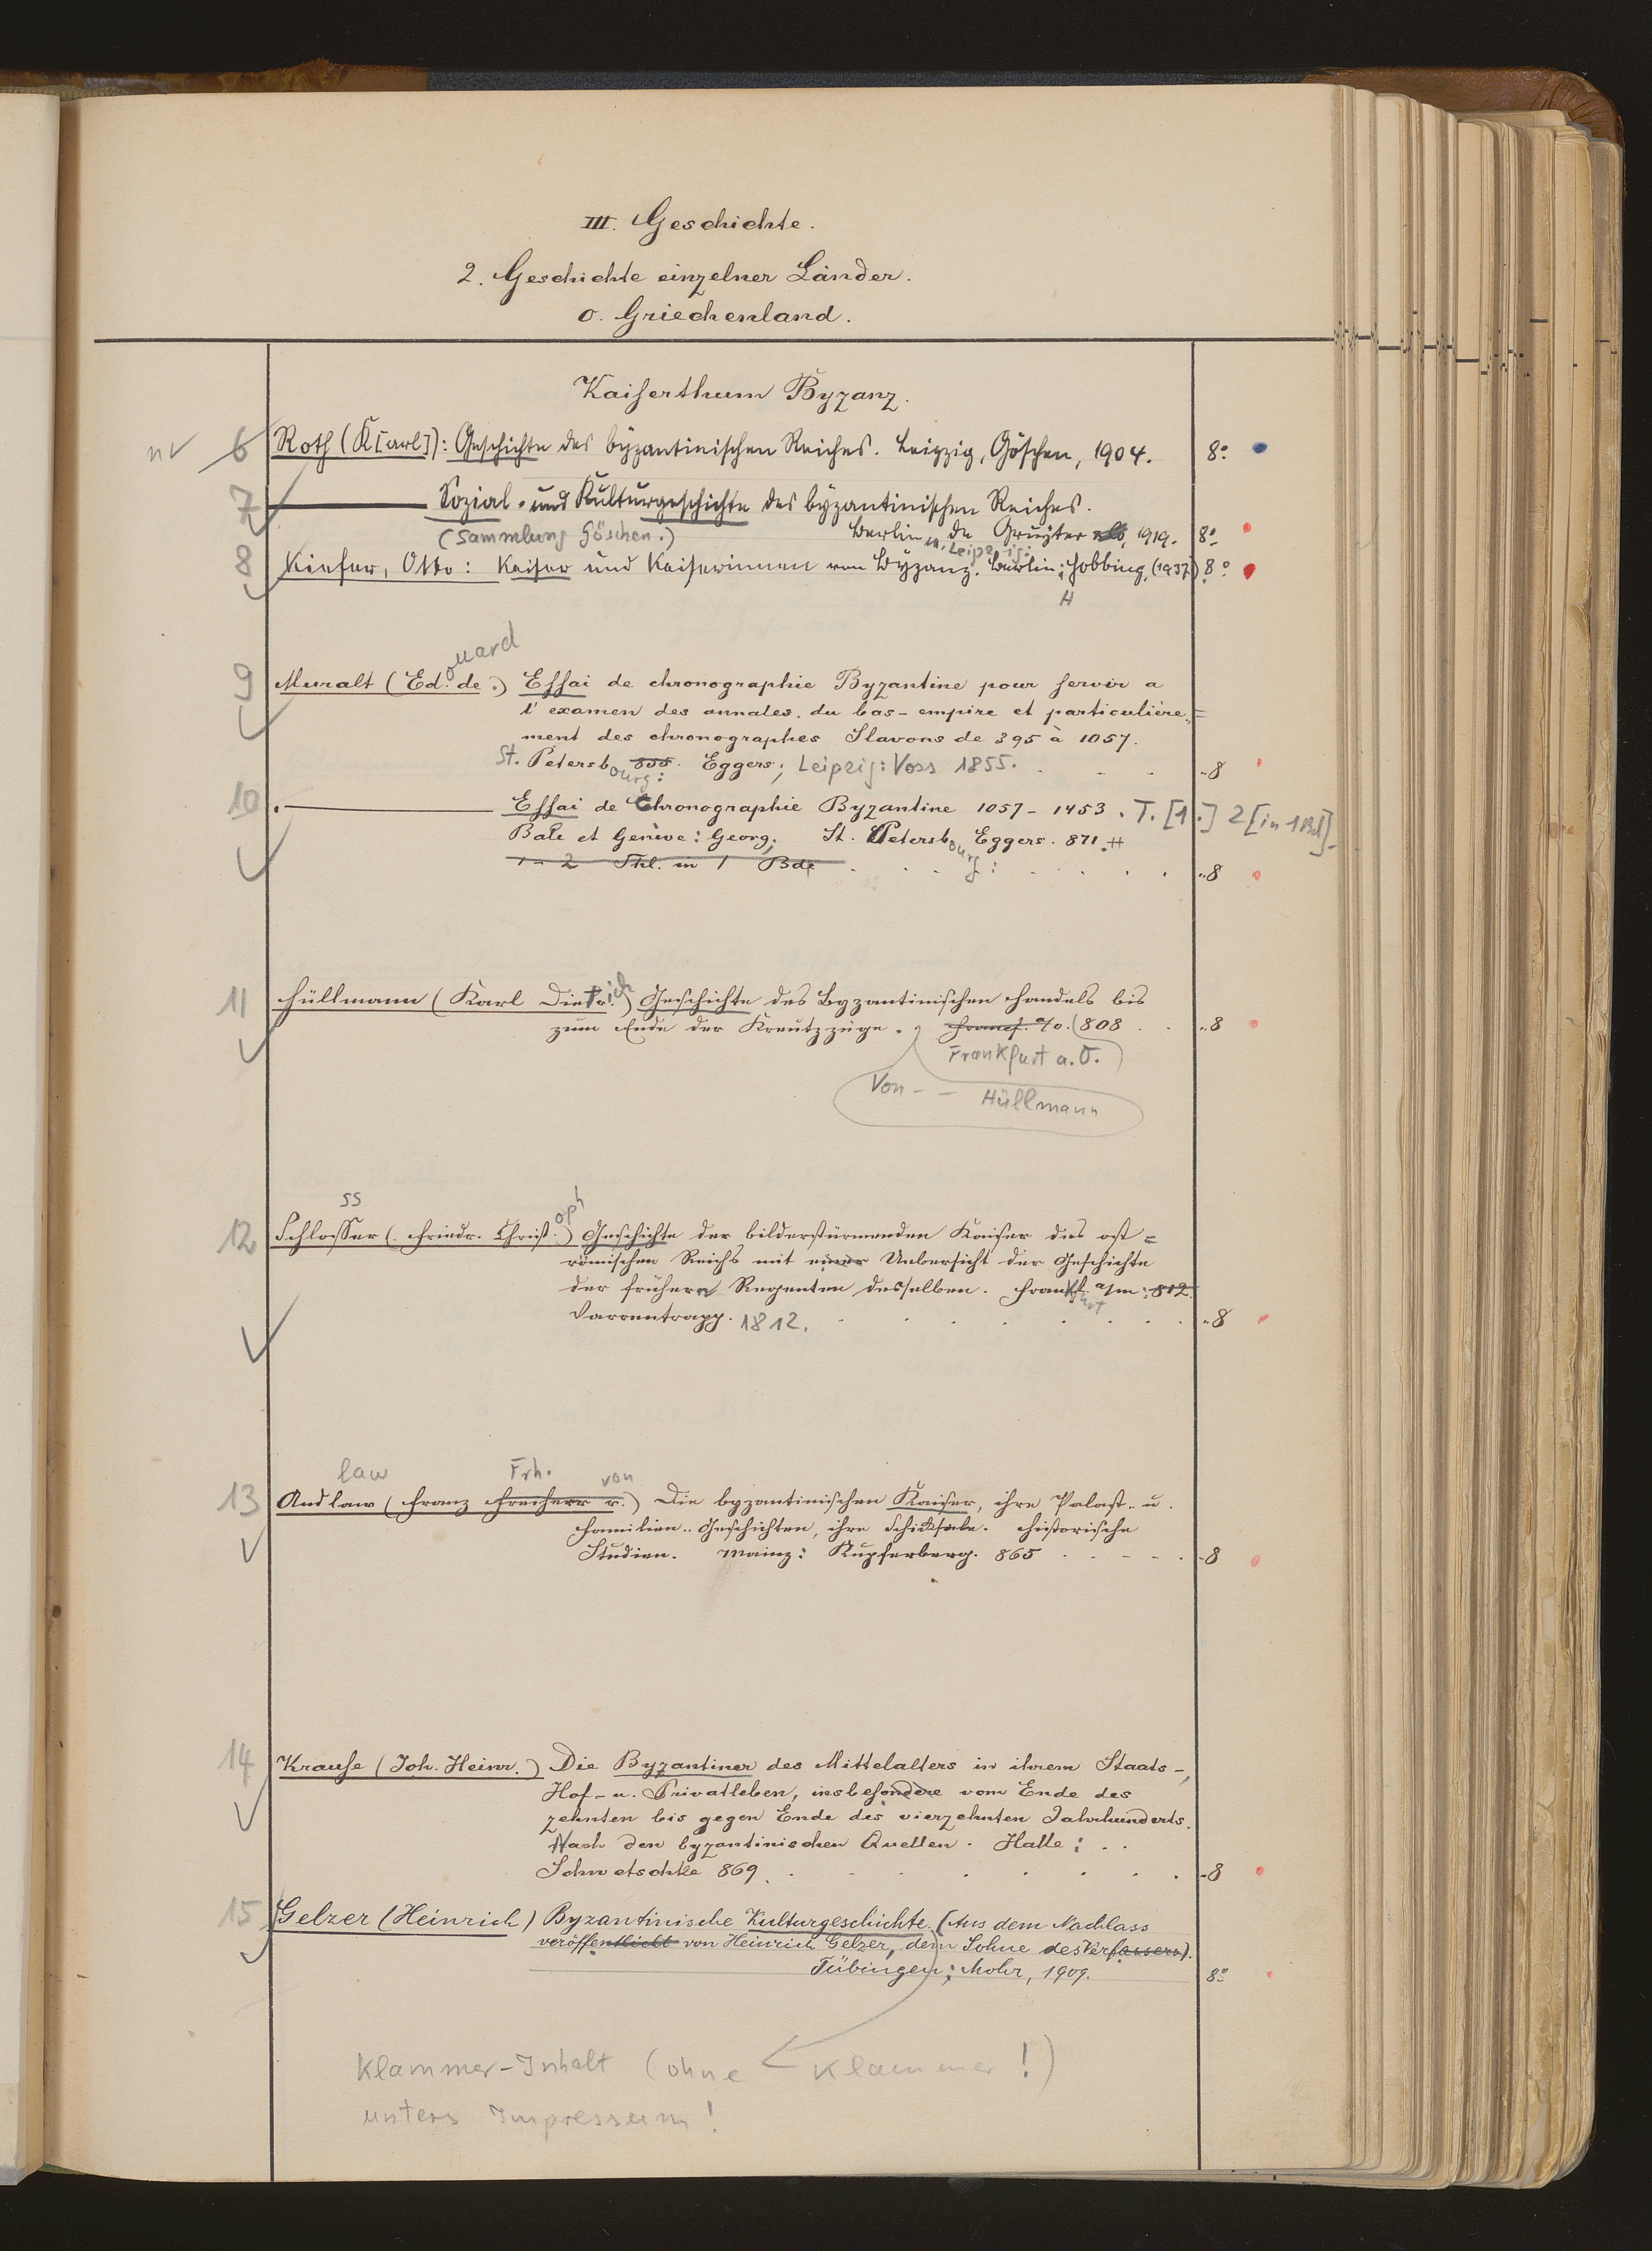 III. Geschichte.
2. Geschichte einzelner Länder.
o. Griechenland.
Kaiserthum Byzanz.
nv 6 Roth (K[arl]): Geschichte des byzantinischen Reiches. Leipzig, Göschen, 1904. 8°
7 ——— Sozial- und Kulturgeschichte des byzantinischen Reiches.
(Sammlung Göschen.) Berlin u. Leipzig: de Gruyter 1919. 8°
8 Kiefer, Otto: Kaiser und Kaiserinnen von Byzanz. Berlin: Hobbing, (1937) 8°
H
9 Muralt (Ed.ouard de.) Essai de chronographie Byzantine pour servir a
l'examen des annales du bas-empire et particulière=
ment des chronographes Slavons de 395 à 1057.
St. Petersbourg: 855. Eggers; Leipzig: Voss 1855. 8
10 ——— Essai de Chronographie Byzantine 1057-1453. T. [1.] 2 [in 1 Bd].
Bale et Genève: Georg; St. Petersbourg: Eggers. 871.
1 - 2 Thl. in 1 Bde 8
11 Hüllmann (Karl Dietrich) Geschichte des Byzantinischen Handels bis
zum Ende der Kreutzzüge. Francf. a/o. 808 8
Frankfurt a.O.
Von - - Hüllmann
ss
12 Schlosser (Friedr. Christoph) Geschichte der bilderstürmenden Kaiser des ost=
römischen Reichs mit einer Uebersicht der Geschichte
der frühern Regenten desselben. Frankfurt a/m: 812.
Varrentrapp. 1812. 8
law Frh. von
13 Andlaw (Franz Freiherr v.) Die byzantinischen Kaiser, ihre Palast- u.
Familien-Geschichten, ihre Schicksale. Historische
Studien. Mainz: Kupferberg. 865 8
14 Krause (Joh. Heinr.) Die Byzantiner des Mittelalters in ihrem Staats-,
Hof- u. Privatleben, insbesondere vom Ende des
zehnten bis gegen Ende des vierzehnten Jahrhunderts.
Nach den byzantinischen Quellen. Halle:
Schwetschke 869. 8
15 Gelzer (Heinrich) Byzantinische Kulturgeschichte. (Aus dem Nachlass
veröffentlicht von Heinrich Gelzer, dem Sohne des Verfassers).
Tübingen: Mohr, 1909. 8°
Klammer-Inhalt (ohne Klammer!)
unters Impressum!